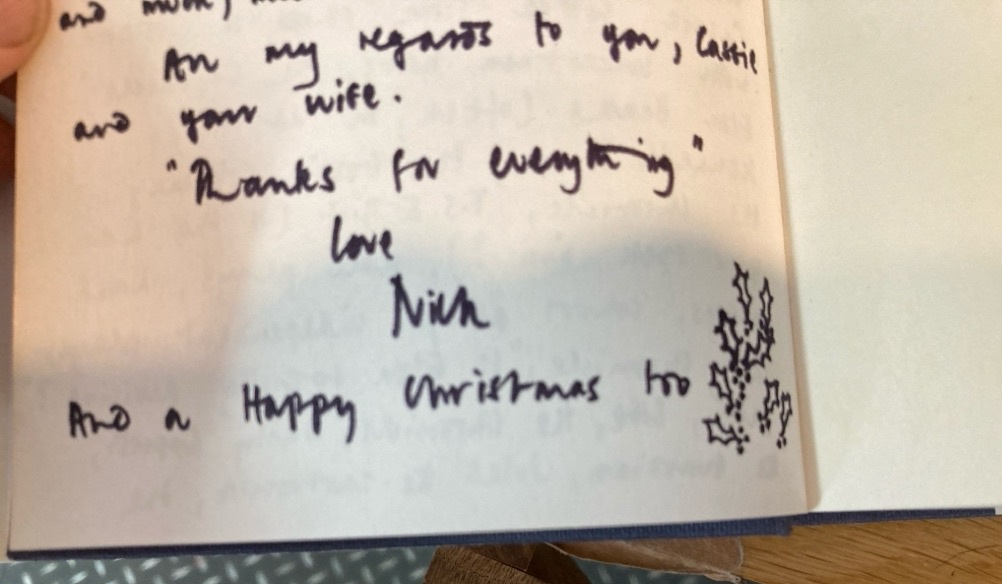 and much,
All my regards to you, Cassie
and your wife.
"Thanks for everything"
Love
Nick
And a Happy Christmas too